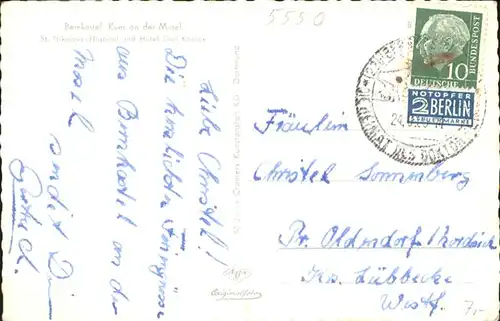 Bernkastel Kues an der Mosel
St. Nikolaus-Hospital und Hotel Drei Könige
5550
Liebe Christel!
Die herzlichsten Feriengrüsse
aus Bernkastel an der
Mosel sendet Dir
Gertrud.
10
DEUTSCHE
BUNDESPOST
NOTOPFER
2 BERLIN
STEUERMARKE
Fräulein
Christel Sonnenberg
Pr. Oldendorf
Krs. Lübbecke
Westf.
7,-
Agfa
Originalfoto